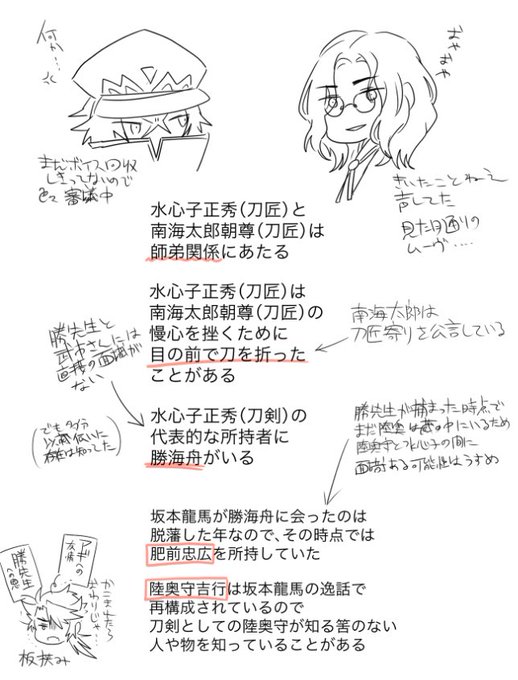 何か…
おやおや
まだボイス回収
しきってないので
審議中
きいたことねえ
声してた
見た目通りの
ムーヴ….
水心子正秀(刀匠)と
南海太郎朝尊(刀匠)は
師弟関係にあたる
水心子正秀(刀匠)は
南海太郎朝尊(刀匠)の
慢心を挫くために
目の前で刀を折った
ことがある
南海太郎は
刀匠寄りを公言している
勝先生と
武市さんには
直接の面識が
ない
水心子正秀(刀剣)の
代表的な所持者に
勝海舟がいる
勝先生が捕まった時点で
まだ陸奥は
陸奥守と水心子の間に
面識ある可能性はうすめ
坂本龍馬が勝海舟に会ったのは
脱藩した年なので、その時点では
肥前忠広を所持していた
陸奥守吉行は坂本龍馬の逸話で
再構成されているので
刀剣としての陸奥守が知る筈のない
人や物を知っていることがある
アギへの
友情
勝先生
への恩
板挟み